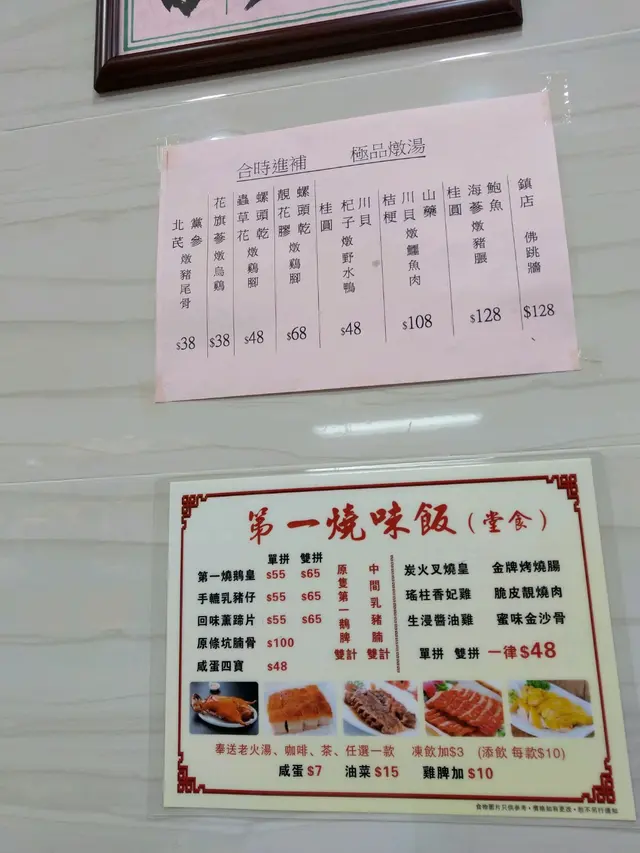 合時進補 極品燉湯
鎮店 佛跳牆 $128
鮑魚海蔘桂圓燉豬𦟌 $128
山藥川貝桔梗燉鱷魚肉 $108
川貝杞子桂圓燉野水鴨 $48
螺頭乾靚花膠燉鷄腳 $68
螺頭乾蟲草花燉鷄腳 $48
花旗蔘燉烏鷄 $38
黨參北芪燉豬尾骨 $38
第一燒味飯(堂食)
單拼 雙拼
第一燒鵝皇 $55 $65
手轆乳豬仔 $55 $65
回味薰蹄片 $55 $65
原條坑腩骨 $100
咸蛋四寶 $48
原隻第一鵝脾雙計
中間乳豬腩雙計
炭火叉燒皇 金牌烤燒腸
瑤柱香妃雞 脆皮靚燒肉
生浸醬油雞 蜜味金沙骨
單拼 雙拼 一律$48
奉送老火湯、咖啡、茶、任選一款 凍飲加$3 (添飲 每款$10)
咸蛋 $7 油菜 $15 雞脾加 $10
食物圖片只供參考，價格如有更改，恕不另行通知